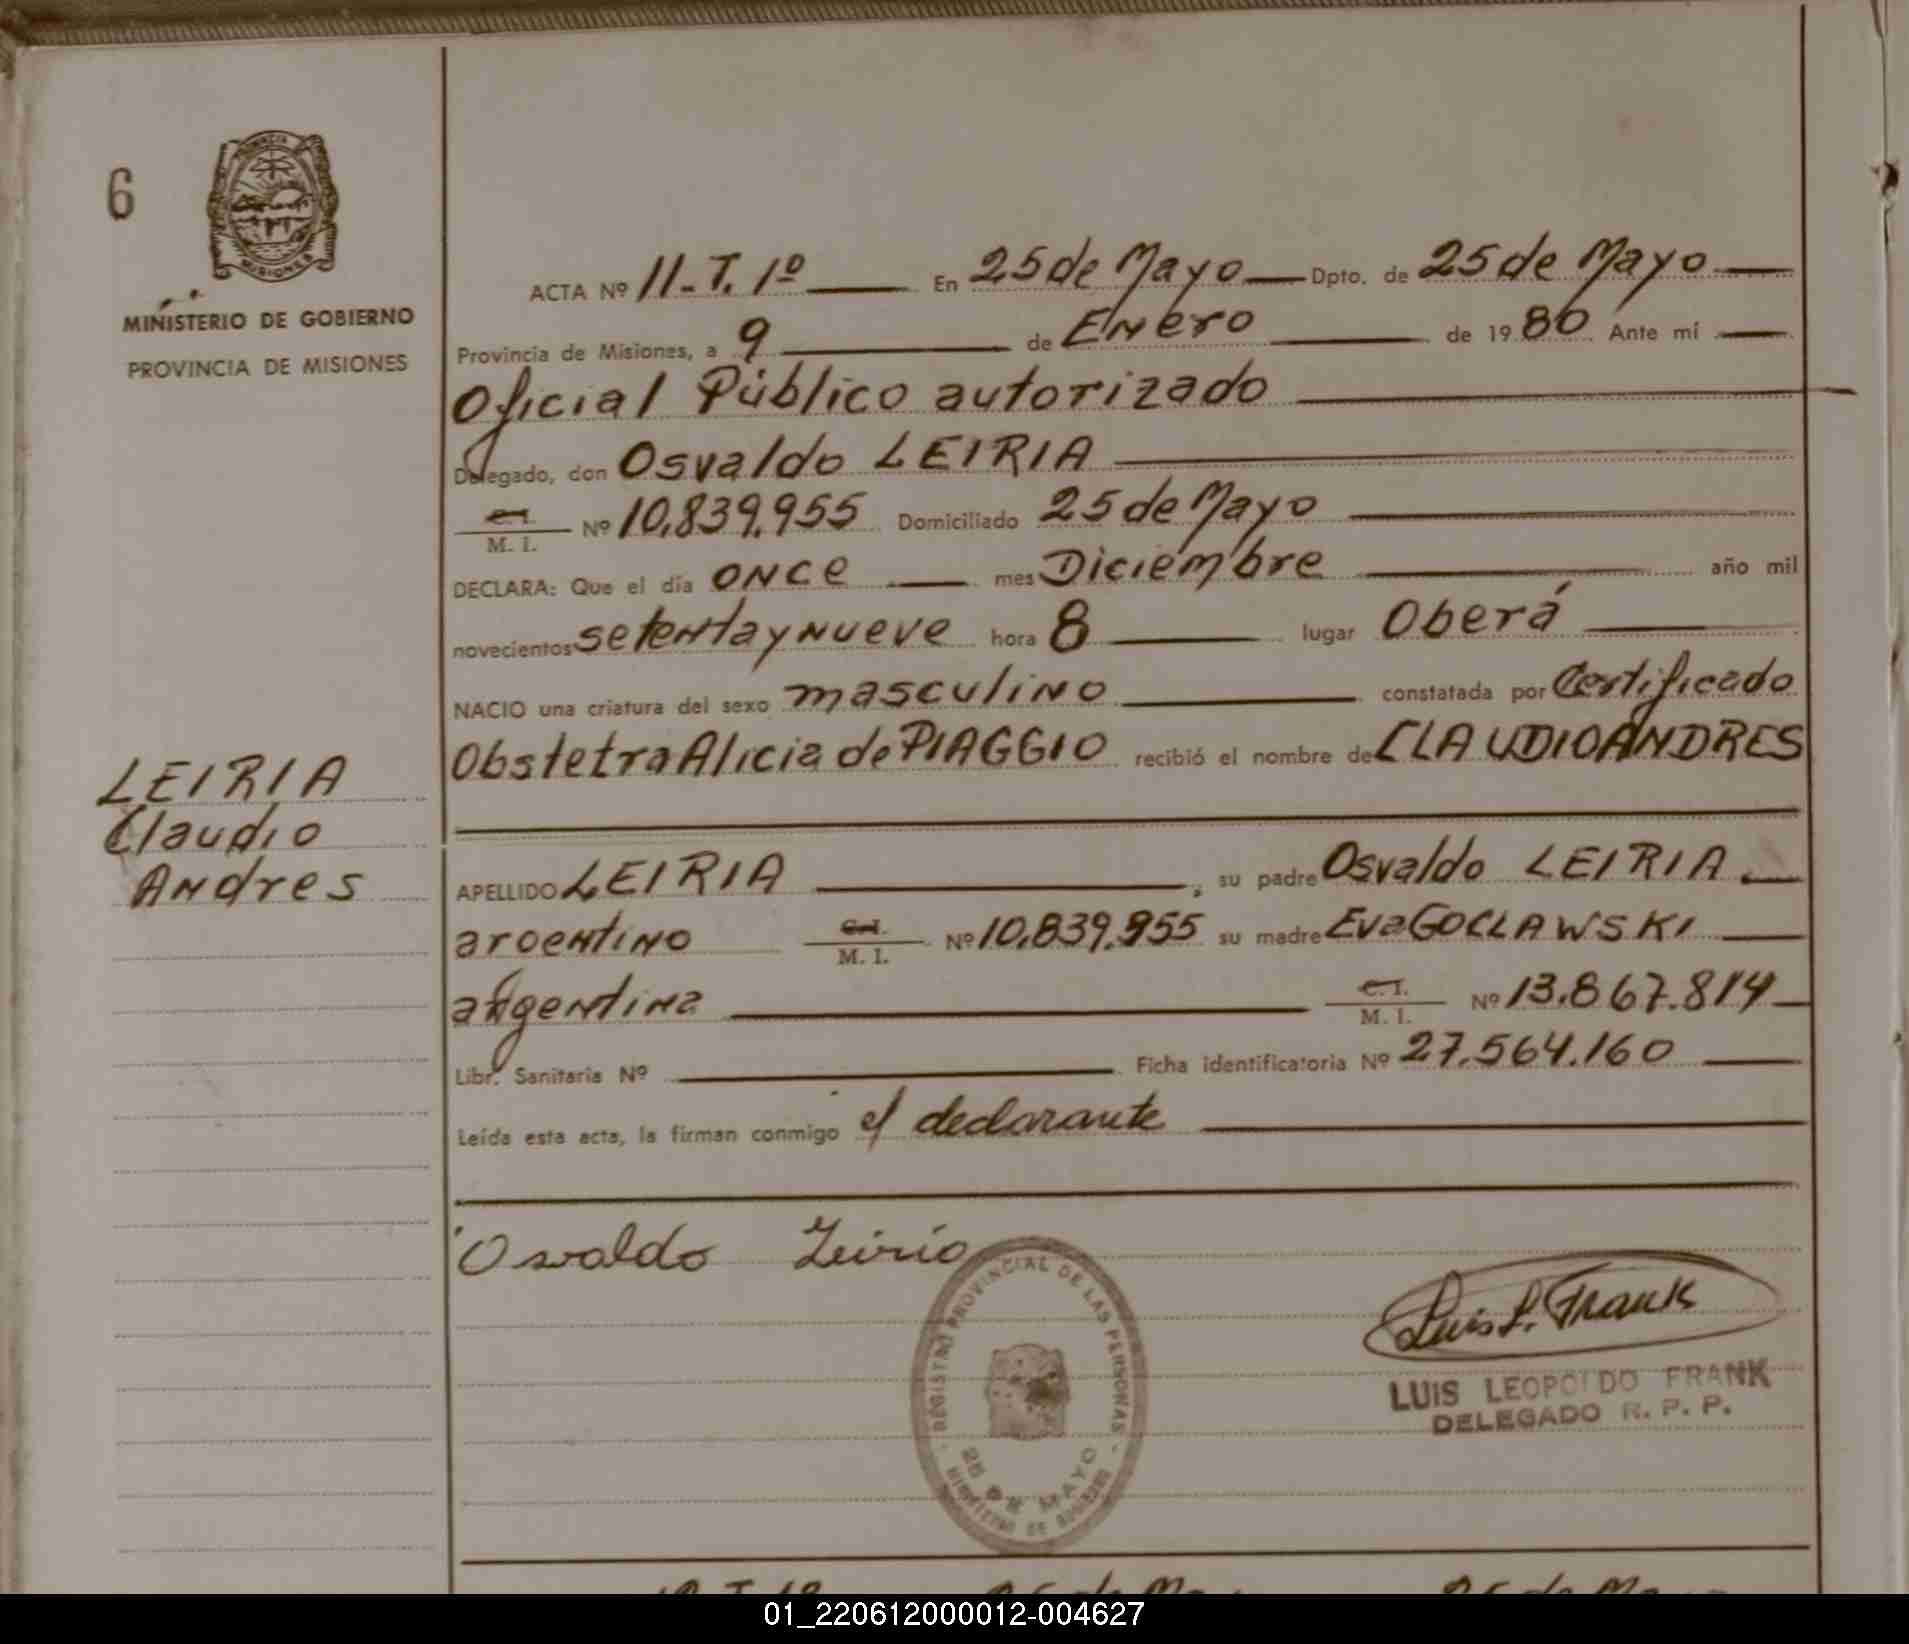 6
MISIONES
MINISTERIO DE GOBIERNO
PROVINCIA DE MISIONES
ACTA Nº 11-T. 1º En 25 de Mayo Dpto. de 25 de Mayo
Provincia de Misiones, a 9 de Enero de 1980 Ante mí
Oficial Público autorizado
Delegado, don Osvaldo LEIRIA
C.I. M. I. Nº 10.839.955 Domiciliado 25 de Mayo
DECLARA: Que el día once mes Diciembre año mil
novecientos setenta y nueve hora 8 lugar Oberá
NACIO una criatura del sexo masculino constatada por Certificado
Obstetra Alicia de PIAGGIO recibió el nombre de CLAUDIO ANDRES
LEIRIA
Claudio
Andres
APELLIDO LEIRIA, su padre Osvaldo LEIRIA.
argentino C.I. M. I. Nº 10.839.955 su madre Eva GOCLAWSKI
argentina C.I. M. I. Nº 13.867.814
Libr. Sanitaria Nº Ficha identificatoria Nº 27.564.160
Leída esta acta, la firman conmigo el declarante
Osvaldo Leiria
REGISTRO PROVINCIAL DE LAS PERSONAS
25 DE MAYO
MINISTERIO DE GOBIERNO
Luis L. Frank
LUIS LEOPOLDO FRANK
DELEGADO R. P. P.
01_220612000012-004627